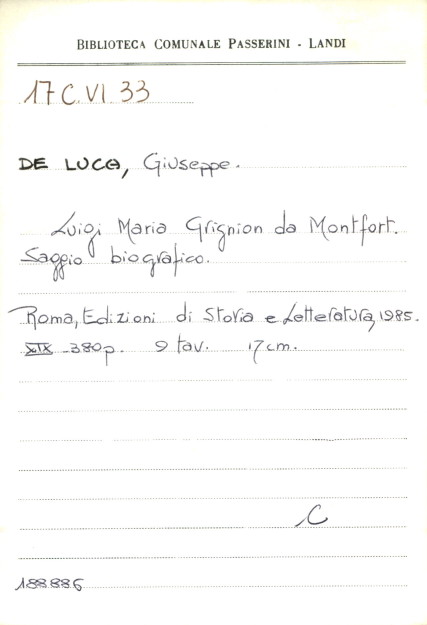 BIBLIOTECA COMUNALE PASSERINI - LANDI
17 C.VI.33
DE LUCA, Giuseppe.
Luigi Maria Grignion da Montfort.
Saggio biografico.
Roma, Edizioni di Storia e Letteratura, 1985.
XIX -380p. 9 tav. 17cm.
C
188.886